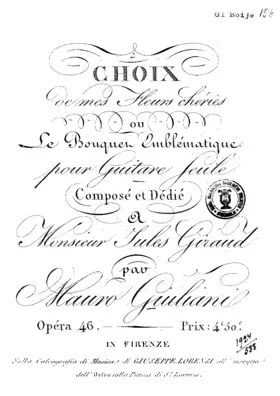 Gl Boije 156
CHOIX
de mes Fleurs chéries
ou
Le Bouquet Emblématique
pour Guitare Seule
Composé et Dédié
A
Monsieur Jules Giraud
par
Mauro Giuliani
Opéra 46. Prix: 4f 50c.
IN FIRENZE
Nella Calcografia di Musica di GIUSEPPE LORENZI all' insegna
dell' Orfeo sulla Piazza di St. Lorenzo.